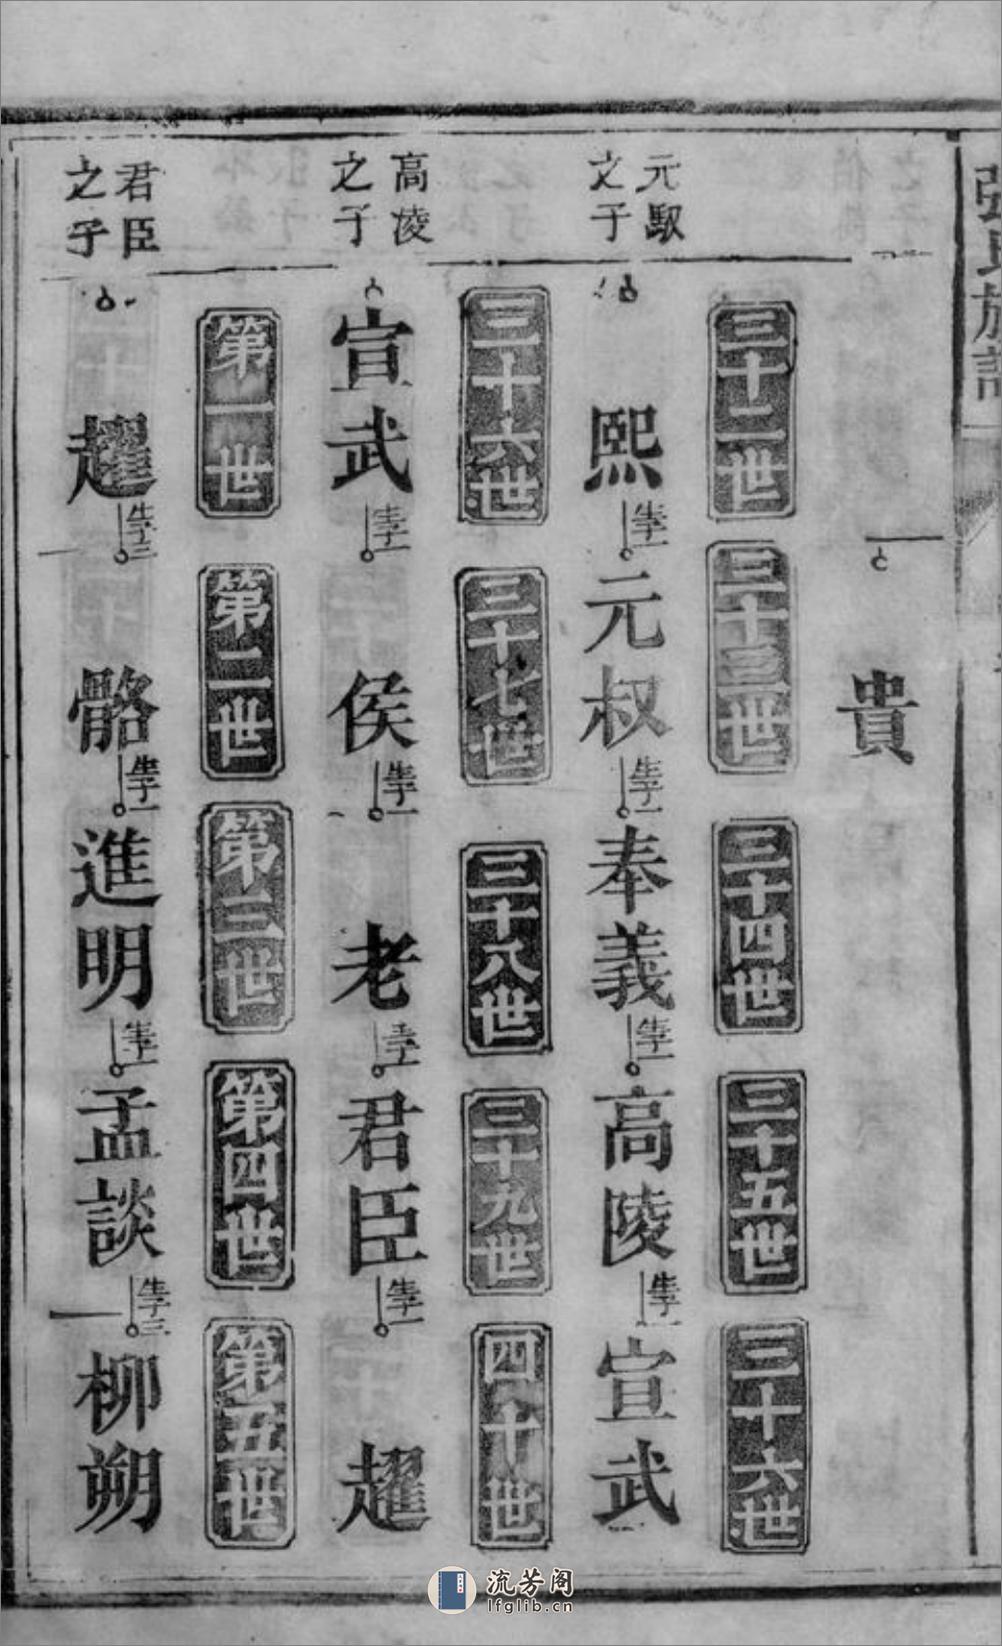 張氏族譜
貴
三十二世
三十三世
三十四世
三十五世
三十六世
元馭
之子
熙
生子一
元叔
生子一
奉義
生子一
高陵
生子一
宣武
三十六世
三十七世
三十八世
三十九世
四十世
高陵
之子
宣武
生子一
侯
生子一
老
生子一
君臣
生子一
趯
第一世
第二世
第三世
第四世
第五世
君臣
之子
趯
生子三
骼
生子一
進明
生子一
孟談
生子三
柳朔
流芳阁
lfglib.cn